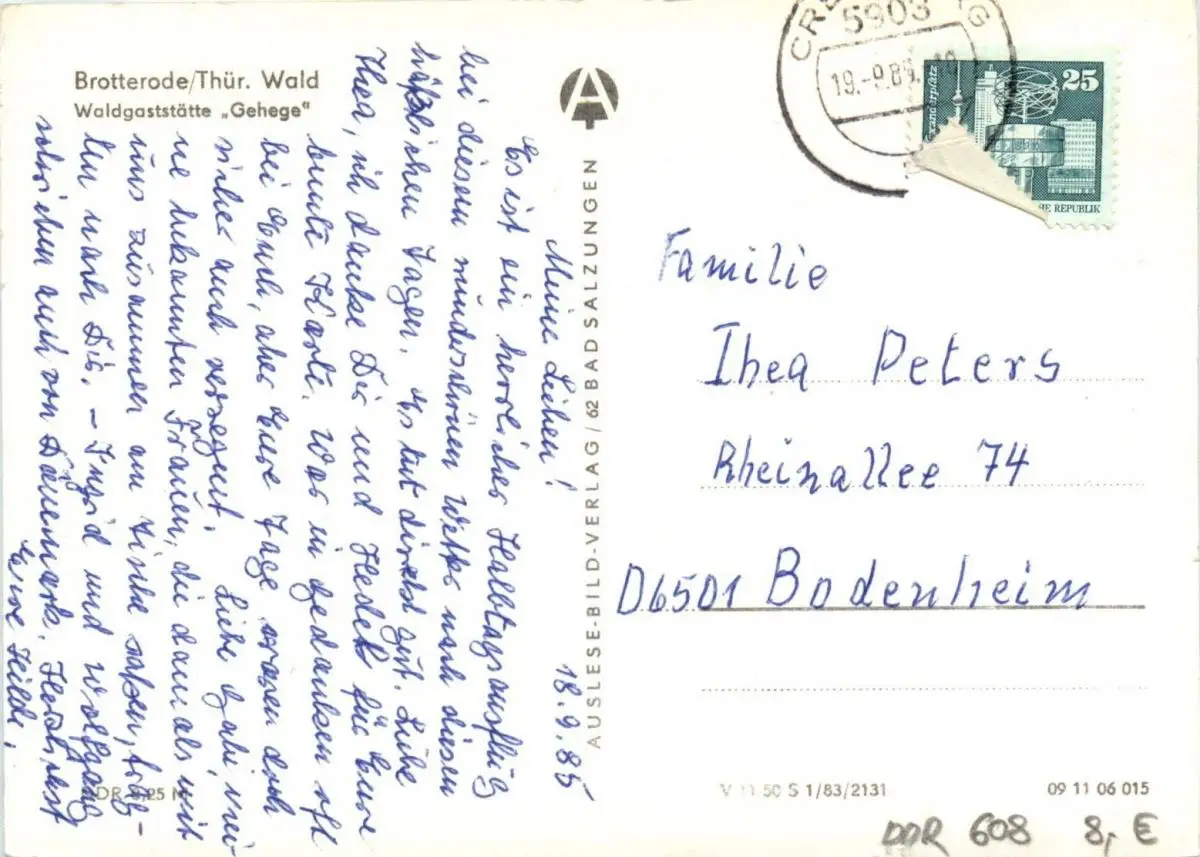 Brotterode/Thür. Wald
Waldgaststätte „Gehege"
18.9.85
Meine Lieben!
Es ist ein herrlicher Halbtagsausflug
bei diesem wunderschönen Wetter nach diesen
häßlichen Tagen. Es tut direkt gut. Liebe
Thea, ich danke Dir und Hedel für Eure
bunte Karte. War in Gedanken oft
bei Euch, aber Eure Tage waren doch
sicher auch verregnet.
Liebe Gabi, mei-
ne bekannten Frauen, die damals mit
uns zusammen am Tische saßen, frag-
ten nach Dir. – Ingrid und Wolfgang
schrieben auch von Dänemark. Herzlichst
Eure Heidi.
DDR 0,25 M
AUSLESE-BILD-VERLAG / 62 BAD SALZUNGEN
5903
19.-9.85
25
Familie
Thea Peters
Rheinallee 74
D6501 Bodenheim
V 11 50 S 1/83/2131
09 11 06 015
DDR 608 8,- €